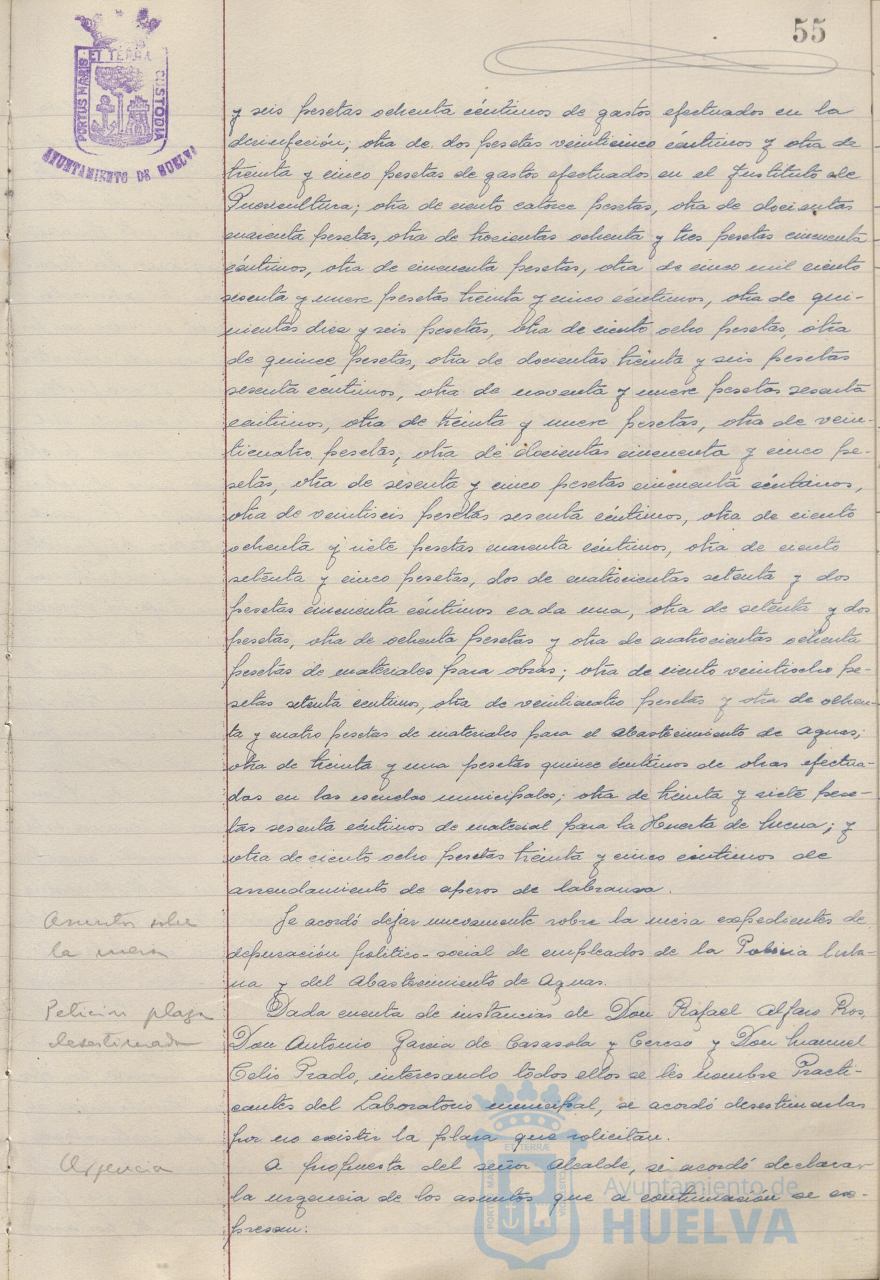 55
PORTUS MARIS ET TERRÆ CUSTODIA
AYUNTAMIENTO DE HUELVA
y seis pesetas ochenta céntimos de gastos efectuados en la
desinfeción; otra de dos pesetas veinticinco céntimos y otra de
treinta y cinco pesetas de gastos efectuados en el Instituto de
Puericultura; otra de ciento catorce pesetas, otra de docientas
cuarenta pesetas, otra de trecientas ochenta y tres pesetas cincuenta
céntimos, otra de cincuenta pesetas, otra de cinco mil ciento
sesenta y nueve pesetas treinta y cinco céntimos, otra de qui-
nientas diez y seis pesetas, otra de ciento ocho pesetas, otra
de quince pesetas, otra de docientas treinta y seis pesetas
sesenta céntimos, otra de noventa y nueve pesetas sesenta
céntimos, otra de treinta y nueve pesetas, otra de vein-
ticuatro pesetas, otra de docientas cincuenta y cinco pe-
setas, otra de sesenta y cinco pesetas cincuenta céntimos,
otra de veintiseis pesetas sesenta céntimos, otra de ciento
ochenta y siete pesetas cuarenta céntimos, otra de ciento
setenta y cinco pesetas, dos de cuatrocientas setenta y dos
pesetas cincuenta céntimos cada una, otra de setenta y dos
pesetas, otra de ochenta pesetas y otra de cuatrocientas ochenta
pesetas de materiales para obras; otra de ciento veintiocho pe-
setas setenta centimos, otra de veinticuatro pesetas y otra de ochen-
ta y cuatro pesetas de materiales para el abastecimiento de aguas;
otra de treinta y una pesetas quince céntimos de obras efectua-
das en las escuelas municipales; otra de treinta y siete pese-
tas sesenta céntimos de material para la Huerta de Mena; y
otra de ciento ocho pesetas treinta y cinco céntimos de
arrendamiento de aperos de labranza.
Asuntos sobre
la mesa
Se acordó dejar nuevamente sobre la mesa expedientes de
depuración politico-social de empleados de la Policia Urba-
na y del Abastecimiento de Aguas.
Peticion plaza
desestimada
Dada cuenta de instancias de Don Rafael Alfaro Ros,
Don Antonio Garcia de Casasola y Cereso y Don Manuel
Celis Prado, interesando todos ellos se les nombre Practi-
cantes del Laboratorio municipal, se acordó desestimarlas
por no existir la plaza que solicitan.
Urgencia
A propuesta del señor Alcalde, se acordó declarar
la urgencia de los asuntos que a continuación se ex-
presan:
PORTUS MARIS ET TERRÆ CUSTODIA
Ayuntamiento de
HUELVA